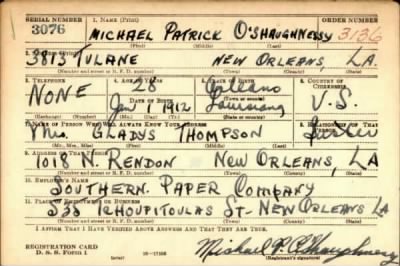 SERIAL NUMBER 1. NAME (Print) ORDER NUMBER
3076 MICHAEL PATRICK O'SHAUGHNESSY 3136
(First) (Middle) (Last)
3813 TULANE NEW ORLEANS, LA.
(Number and street or R. F. D. number) (Town) (County) (State)
3. TELEPHONE 4. AGE IN YEARS 5. PLACE OF BIRTH 6. COUNTRY OF CITIZENSHIP
NONE 28 Orleans
DATE OF BIRTH (Town or county)
Jan 1 1912 Louisiana U.S.
7. NAME OF PERSON WHO WILL ALWAYS KNOW YOUR ADDRESS 8. RELATIONSHIP OF THAT PERSON
Mrs. GLADYS THOMPSON Sister
(Mr., Mrs., Miss) (First) (Middle) (Last)
9. ADDRESS OF THAT PERSON
1018 N. RENDON NEW ORLEANS, LA
(Number and street or R. F. D. number) (Town) (County) (State)
10. EMPLOYER'S NAME
SOUTHERN PAPER COMPANY
11. PLACE OF EMPLOYMENT OR BUSINESS
538 TCHOUPITOULAS ST- NEW ORLEANS LA
(Number and street or R. F. D. number) (Town) (County) (State)
I AFFIRM THAT I HAVE VERIFIED ABOVE ANSWERS AND THAT THEY ARE TRUE.
REGISTRATION CARD
D. S. S. Form 1 Michael P. O'Shaughnessy
(Registrant's signature)